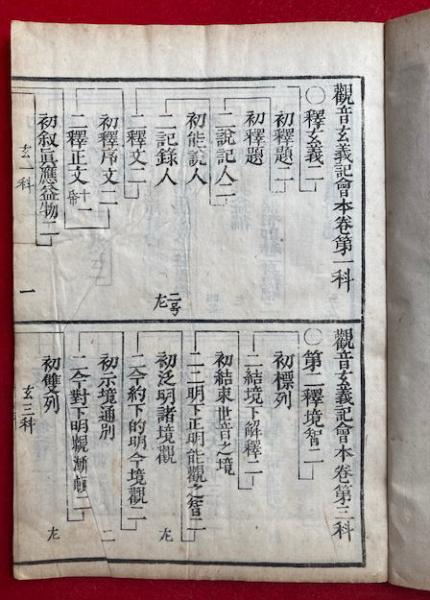 觀音玄義記會本卷第一科
〇釋玄義二
初釋題二
初釋題
二說記人二
初能說人
二記錄人
二釋文二
初釋序文二
二釋正文十二
初敘眞應益物二
玄一科
一
二
左
觀音玄義記會本卷第三科
〇第二釋境智二
初標列
二結境下解釋二
初結束世音之境
二二明下正明能觀之智二
初泛明諸境觀
二今約下的明今境觀二
初示境通別
二今對下明觀漸頓二
初雙列
玄三科
左
二
左